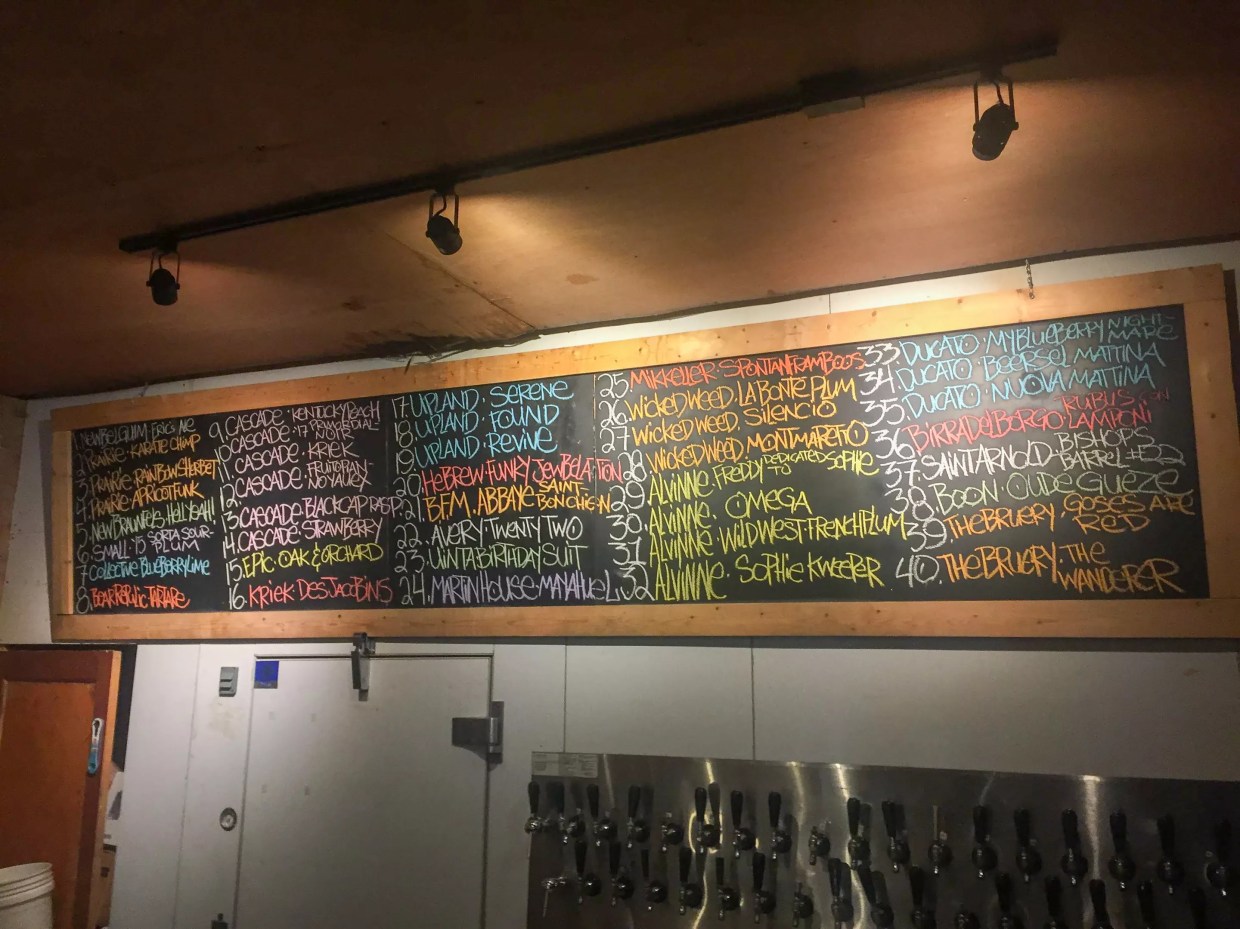 1. NEW BELGIUM · ERIC'S ALE
2. PRAIRIE · KARATE CHIMP
3. PRAIRIE · RAINBOW SHERBET
4. PRAIRIE · APRICOT FUNK
5. NEW BRAUNFELS · HELL YEAH!!
6. SMALL · 15 SORTA SOUR-
PLUM
7. COLLECTIVE · BLUEBERRY LIME
8. BEAR REPUBLIC · TARTARE
9. CASCADE · KENTUCKY PEACH
CASCADE · '17 PRIMORDIAL
NOIR
CASCADE · KRIEK
12. CASCADE · FRUITOPIAN-
NOYAUX
13. CASCADE · BLACKCAP RASP
14. CASCADE · STRAWBERRY
15. EPIC · OAK & ORCHARD
16. KRIEK DES JACOBINS
17. UPLAND · SERENE
18. UPLAND · FOUND
19. UPLAND · REVIVE
20. HEBREW · FUNKY JEWBELATION
21. B.F.M. ABBAYE SAINT
BON CHIEN
22. AVERY · TWENTY TWO
23. UINTA BIRTHDAY SUIT
24. MARTIN HOUSE · MAYAHUEL
25. MIKKELLER · SPONTANFRAMBOOS
26. WICKED WEED · LA BONTE PLUM
27. WICKED WEED · SILENCIO
28. WICKED WEED · MONTMARETTO
29. ALVINNE · FREDDY DEDICATED TO SOPHIE
30. ALVINNE · OMEGA
31. ALVINNE · WILD WEST-FRENCH PLUM
32. ALVINNE · SOPHIE KWEEPER
33. DUCATO · MY BLUEBERRY NIGHT-
MARE
34. DUCATO · BEERSEL MATTINA
35. DUCATO · NUOVA MATTINA
36. BIRRA DEL BORGO · RUBUS
LAMPONI
37. SAINT ARNOLD · BISHOPS
BARREL #
38. BOON · OUDE GUEZE
39. THE BRUERY · GOSES ARE
RED
40. THE BRUERY · THE
WANDERER